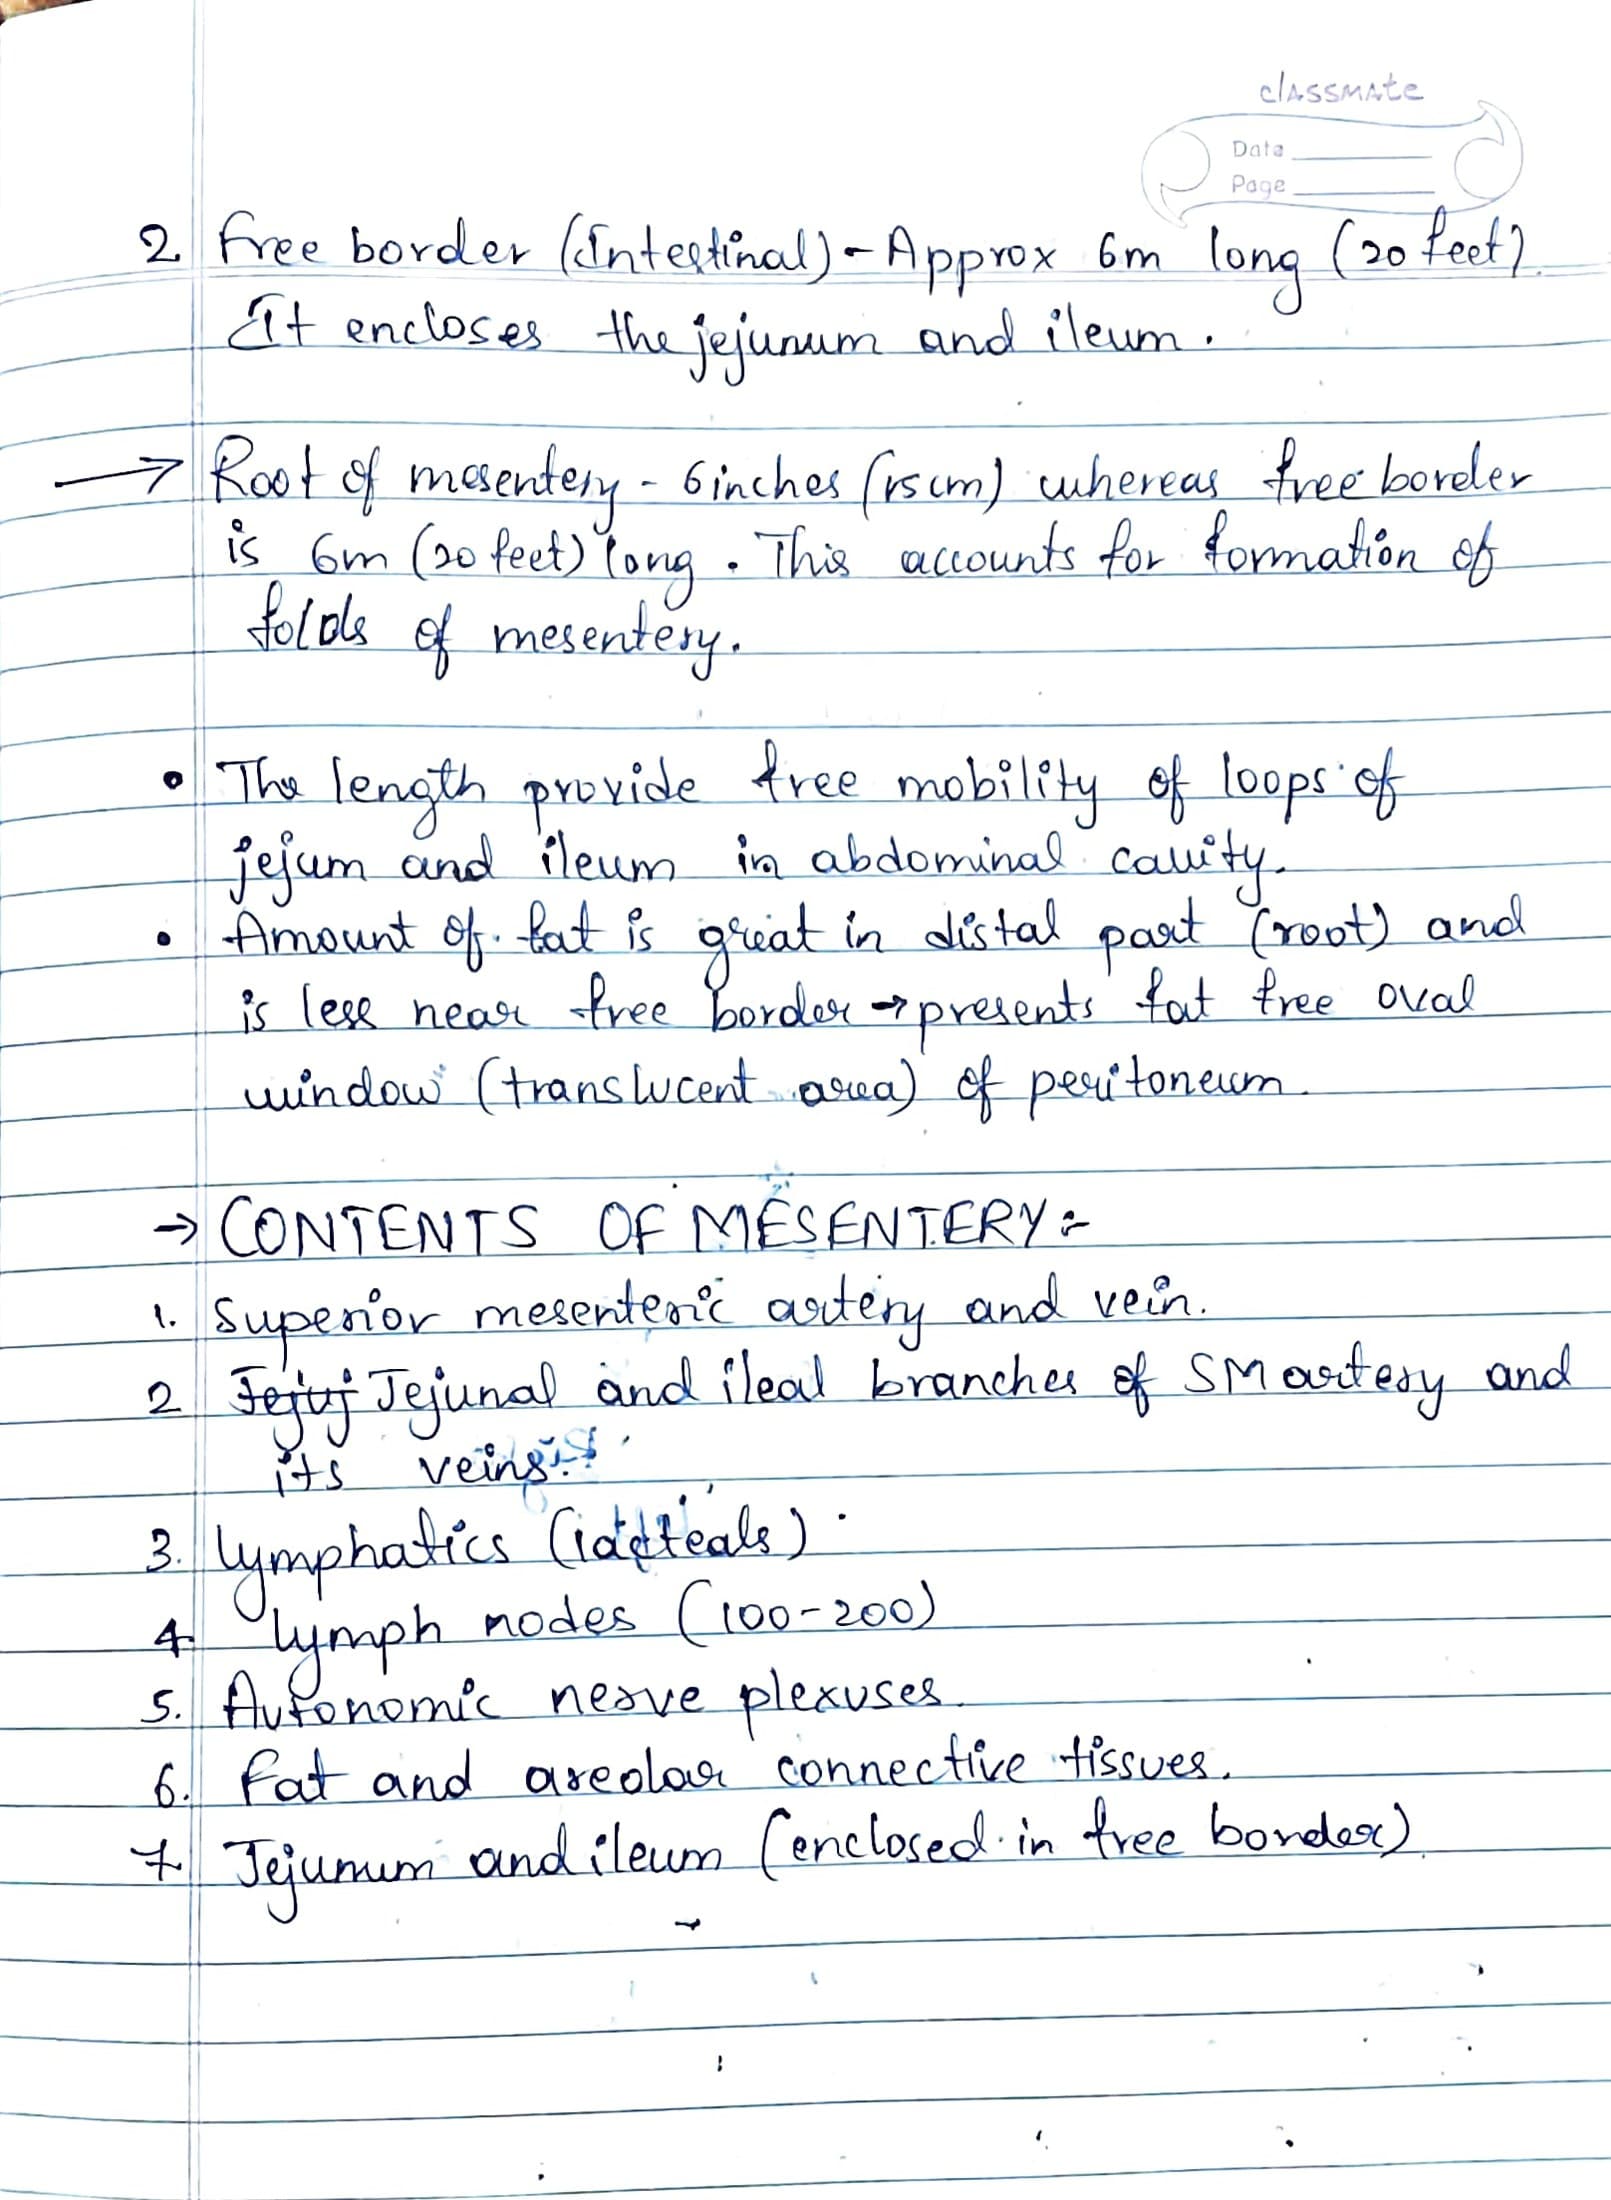 classmate
Date
Page
2 Free border (Intestinal) - Approx 6m long (20 feet).
It encloses the jejunum and ileum.
→ Root of mesentery - 6 inches (15cm) whereas free border
is 6m (20 feet) long. This accounts for formation of
folds of mesentery.
• The length provide free mobility of loops of
jejum and ileum in abdominal cavity.
• Amount of fat is great in distal part (root) and
is less near free border → presents fat free oval
window (translucent area) of peritoneum.
→ CONTENTS OF MESENTERY :-
1. Superior mesenteric artery and vein.
2 Jejuj Jejunal and ileal branches of SM artery and
its veins.
3. lymphatics (lacteals).
4. lymph nodes (100-200)
5. Autonomic nerve plexuses.
6. Fat and areolar connective tissues.
7 Jejunum and ileum (enclosed in free border).